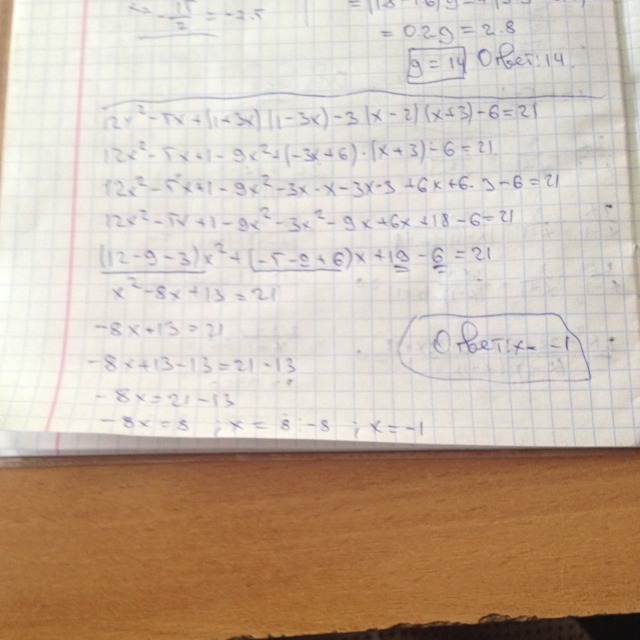 = -2.5
= 0.2y = 2.8
y = 14 Ответ: 14.
12x² - 5x + (1+3x)(1-3x) - 3(x-2)(x+3) - 6 = 21
12x² - 5x + 1 - 9x² + (-3x+6)·(x+3) - 6 = 21
12x² - 5x + 1 - 9x² - 3x·x - 3x·3 + 6x + 6·3 - 6 = 21
12x² - 5x + 1 - 9x² - 3x² - 9x + 6x + 18 - 6 = 21
(12-9-3)x² + (-5-9+6)x + 19 - 6 = 21
x² - 8x + 13 = 21
-8x + 13 = 21
Ответ: x = -1
-8x + 13 - 13 = 21 - 13
-8x = 21 - 13
-8x = 8 ; x = 8 : -8 ; x = -1